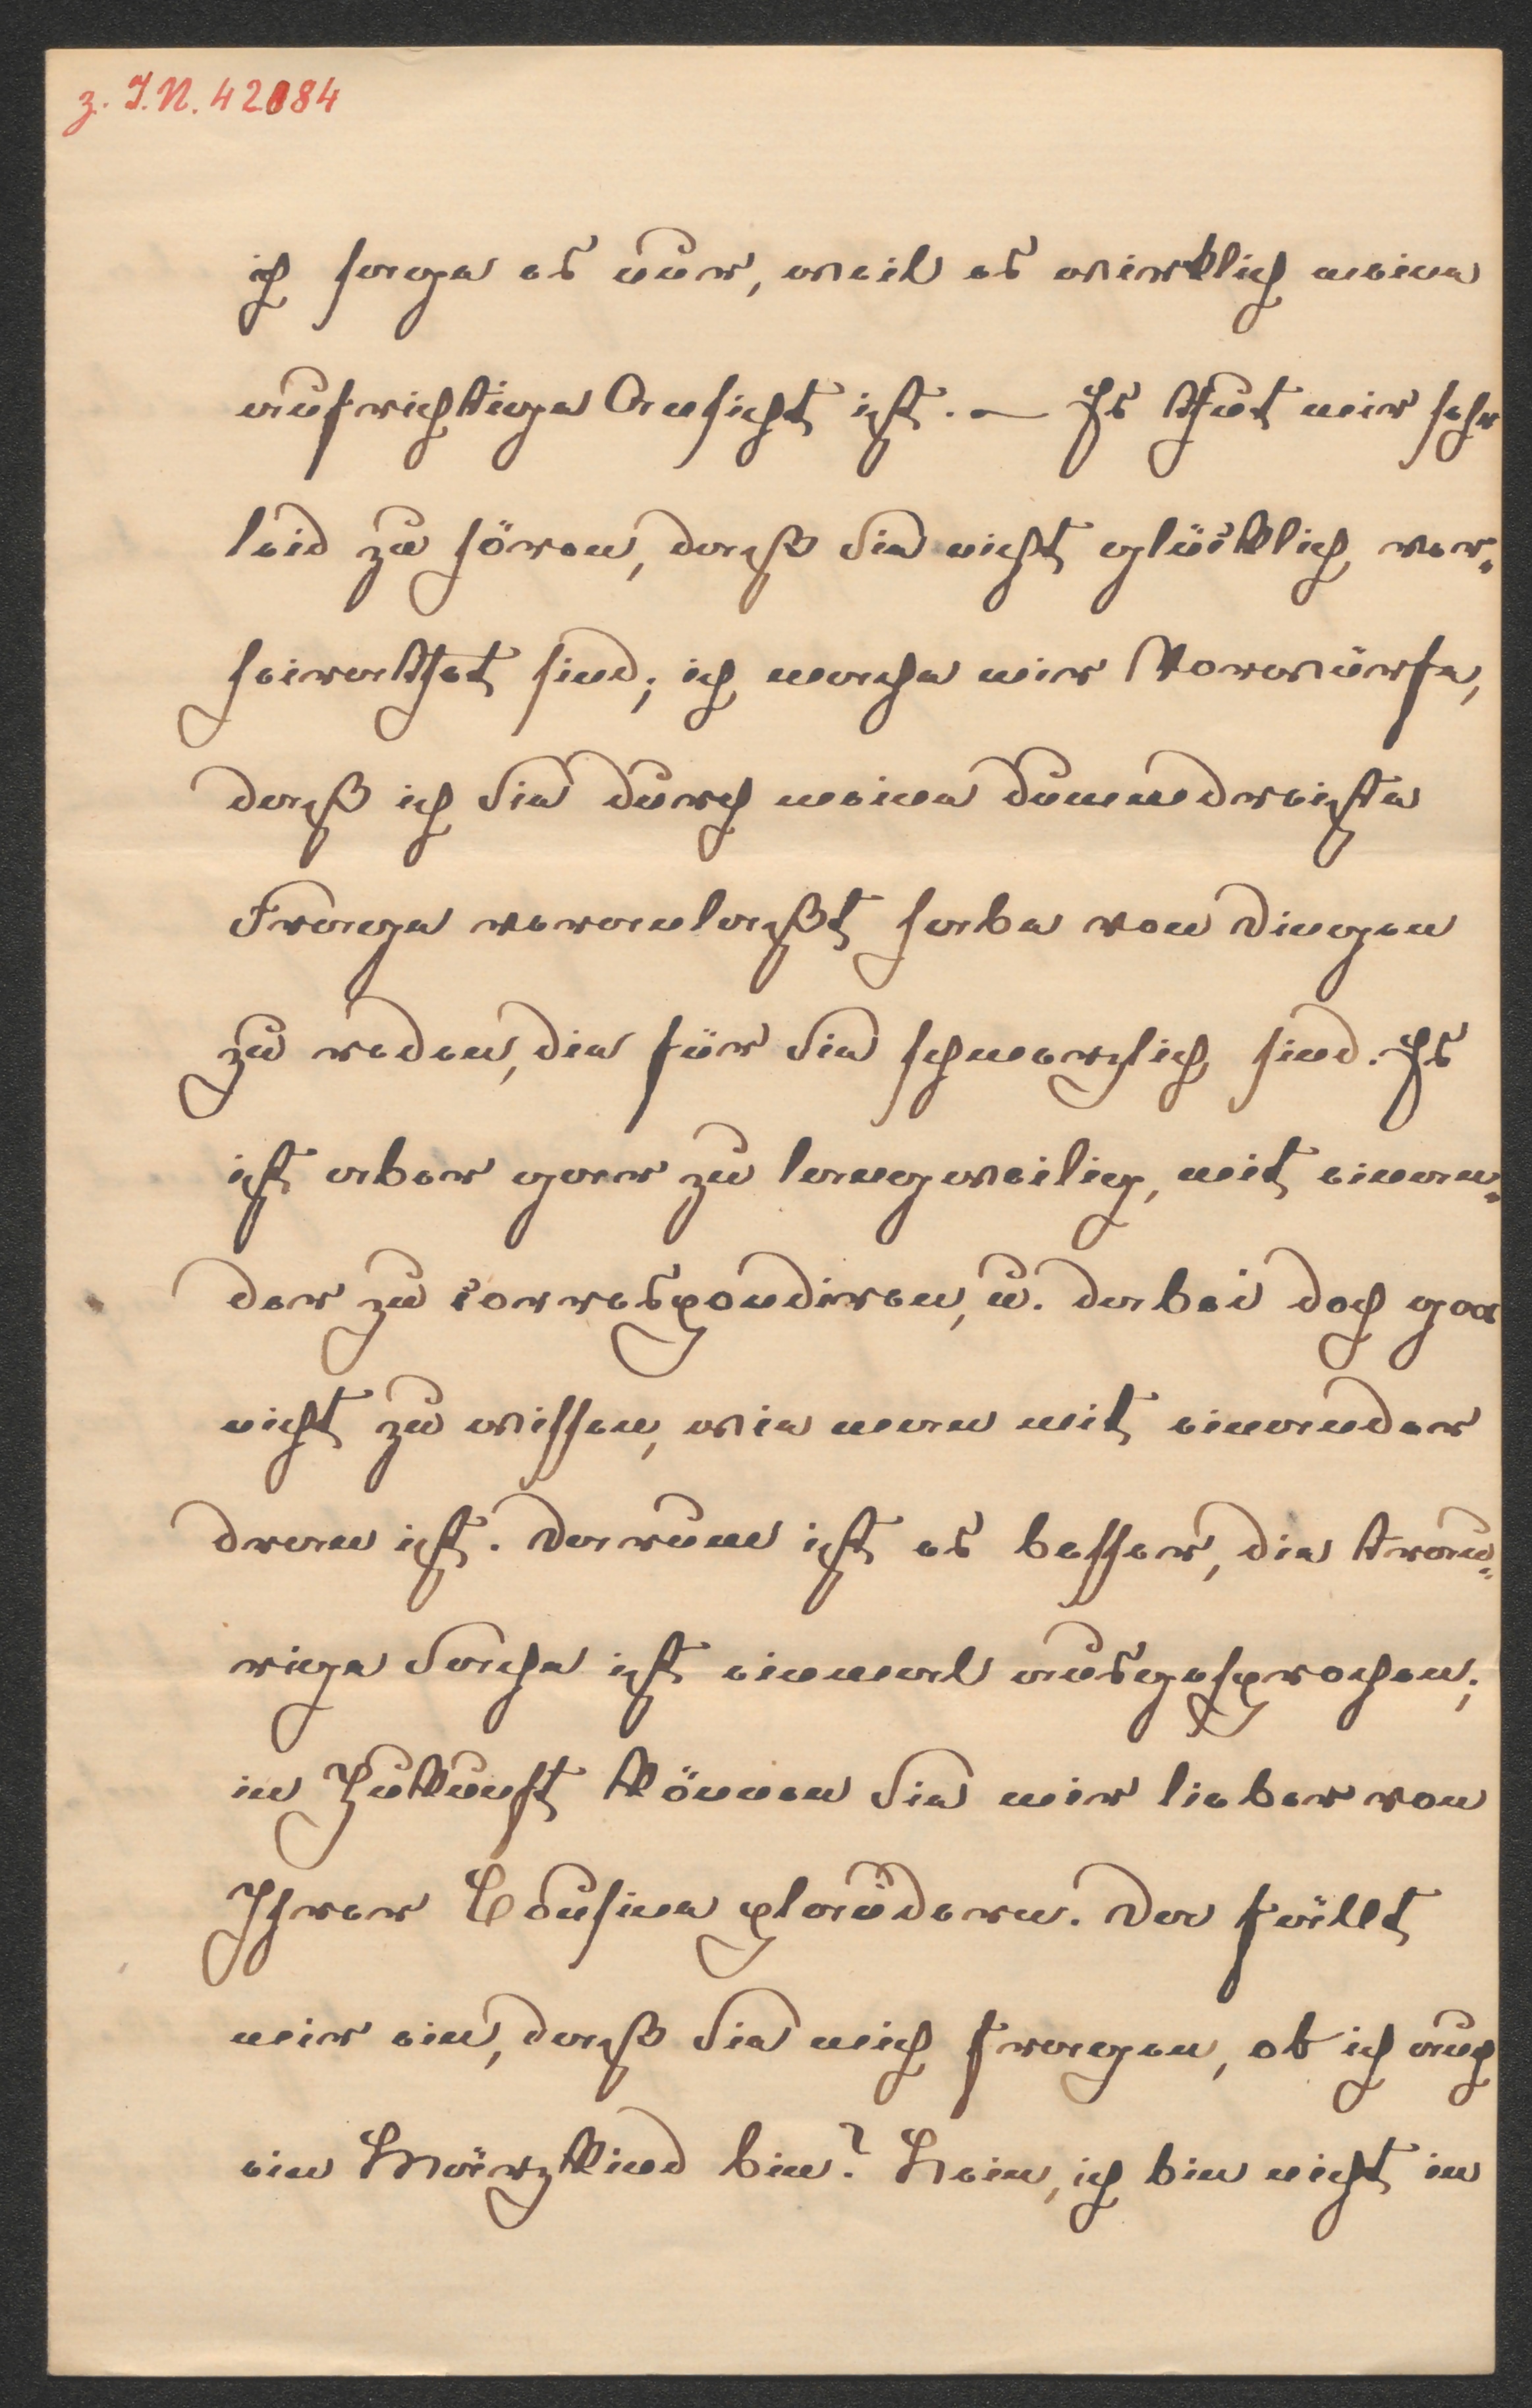 z. I.N. 42084
ich sage es nur, weil es wirklich meine
aufrichtige Ansicht ist. — Es thut mir sehr
leid zu hören, daß Sie nicht glücklich ver-
heirathet sind; ich mache mir Vorwürfe,
daß ich Sie durch meine dummdreiste
Frage veranlaßt habe von Dingen
zu reden, die für Sie schmerzlich sind. Es
ist aber gar zu langweilig, mit einan-
der zu correspondiren, u. dabei doch gar
nicht zu wissen, wie man mit einander
dran ist. Darum ist es besser, die trau-
rige Sache ist einmal ausgesprochen;
in Zukunft können Sie mir lieber von
Ihrer Cousine plaudern. Da fällt
mir ein, daß Sie mich fragen, ob ich auch
ein Märzkind bin? Nein, ich bin nicht im